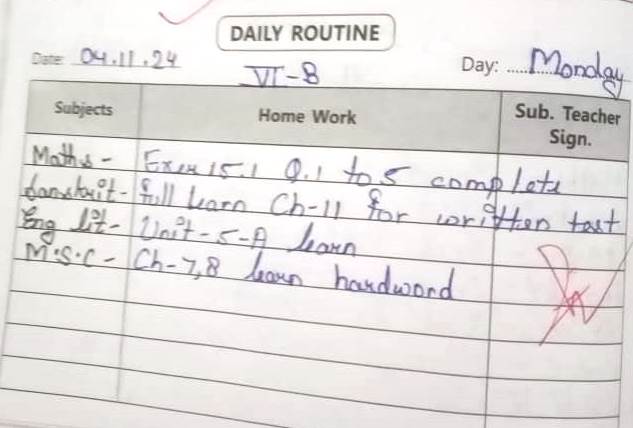 DAILY ROUTINE
Date: 04.11.24 Day: Monday
VI-B
Subjects Home Work Sub. Teacher Sign.
Maths - Exer 15.1 Q.1 to 5 complete
Sanskrit - full learn Ch-11 for written tast
Eng lit - Unit-5-A learn
M.S.C - Ch-7,8 learn hardword